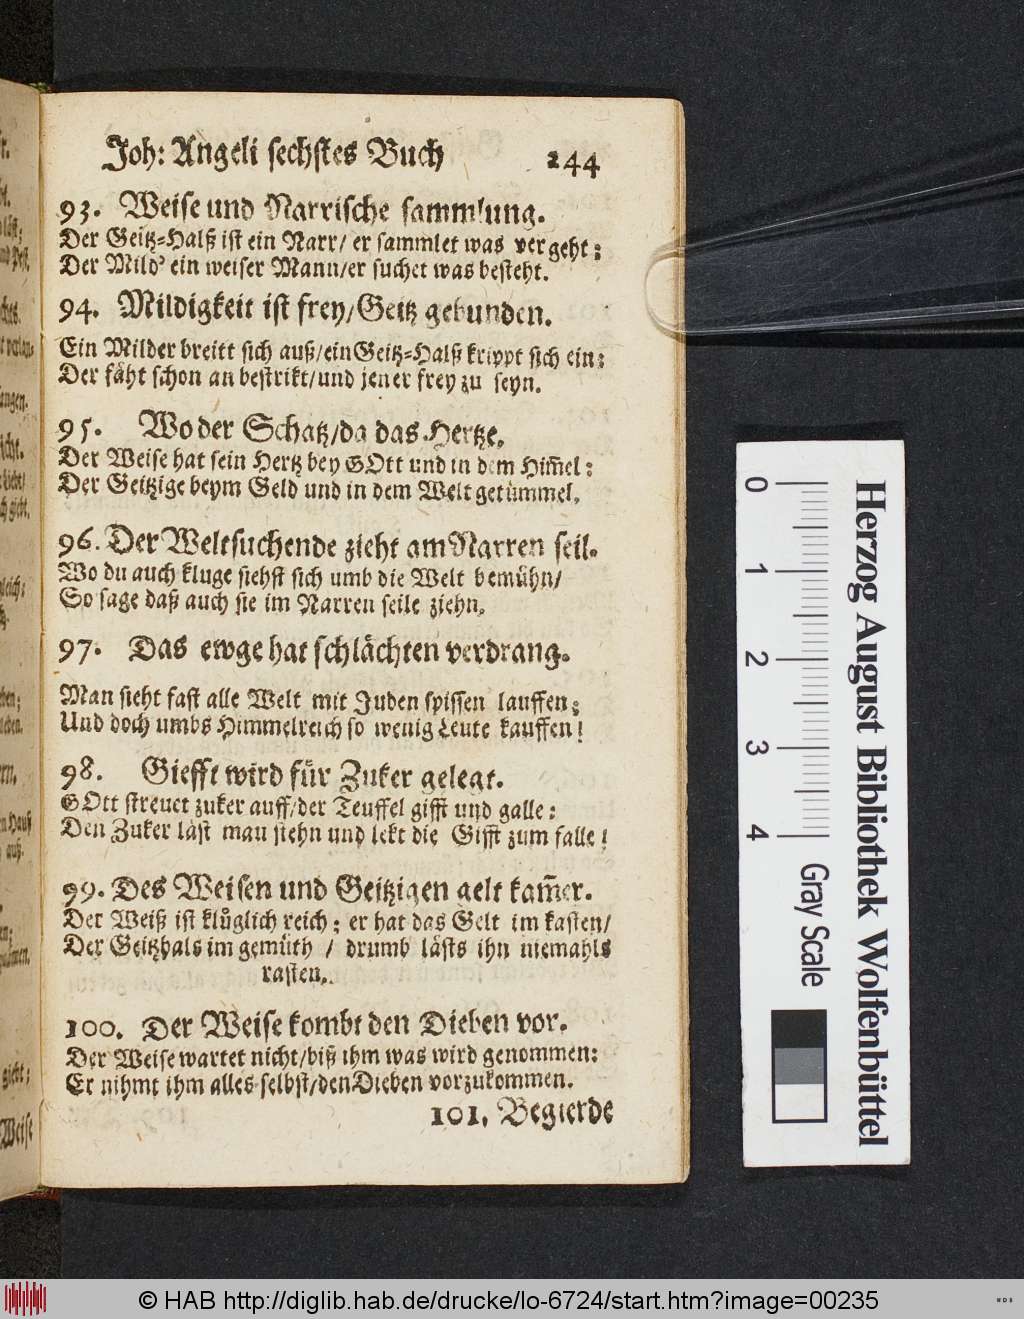 Joh: Angeli sechstes Buch 244
93. Weise und Narrische sammlung.
Der Geitz=Halß ist ein Narr/ er sammlet was vergeht:
Der Mild' ein weiser Mann/er suchet was besteht.
94. Mildigkeit ist frey/Geitz gebunden.
Ein Milder breitt sich auß/ein Geitz=Halß krippt sich ein:
Der fäht schon an bestrikt/und jener frey zu seyn.
95. Wo der Schatz/da das Hertze.
Der Weise hat sein Hertz bey GOtt und in dem Him̃el:
Der Geitzige beym Geld und in dem Welt getümmel.
96. Der Weltsuchende zieht am Narren seil.
Wo du auch kluge siehst sich umb die Welt bemühn/
So sage daß auch sie im Narren seile ziehn.
97. Das ewge hat schlächten verdrang.
Man sieht fast alle Welt mit Juden spissen lauffen;
Und doch umbs Himmelreich so wenig Leute kauffen!
98. Giefft wird für Zuker gelegt.
GOtt streuet zuker auff/der Teuffel gifft und galle:
Den Zuker läst man stehn und lekt die Gifft zum falle!
99. Des Weisen und Geitzigen gelt kam̃er.
Der Weiß ist klůglich reich; er hat das Gelt im kasten/
Der Geitzhals im gemüth / drumb lästs ihn niemahls
rasten.
100. Der Weise kombt den Dieben vor.
Der Weise wartet nicht/biß ihm was wird genommen:
Er nihmt ihm alles selbst/den Dieben vorzukommen.
101. Begierde
0 1 2 3 4
Gray Scale
Herzog August Bibliothek Wolfenbüttel
© HAB http://diglib.hab.de/drucke/lo-6724/start.htm?image=00235